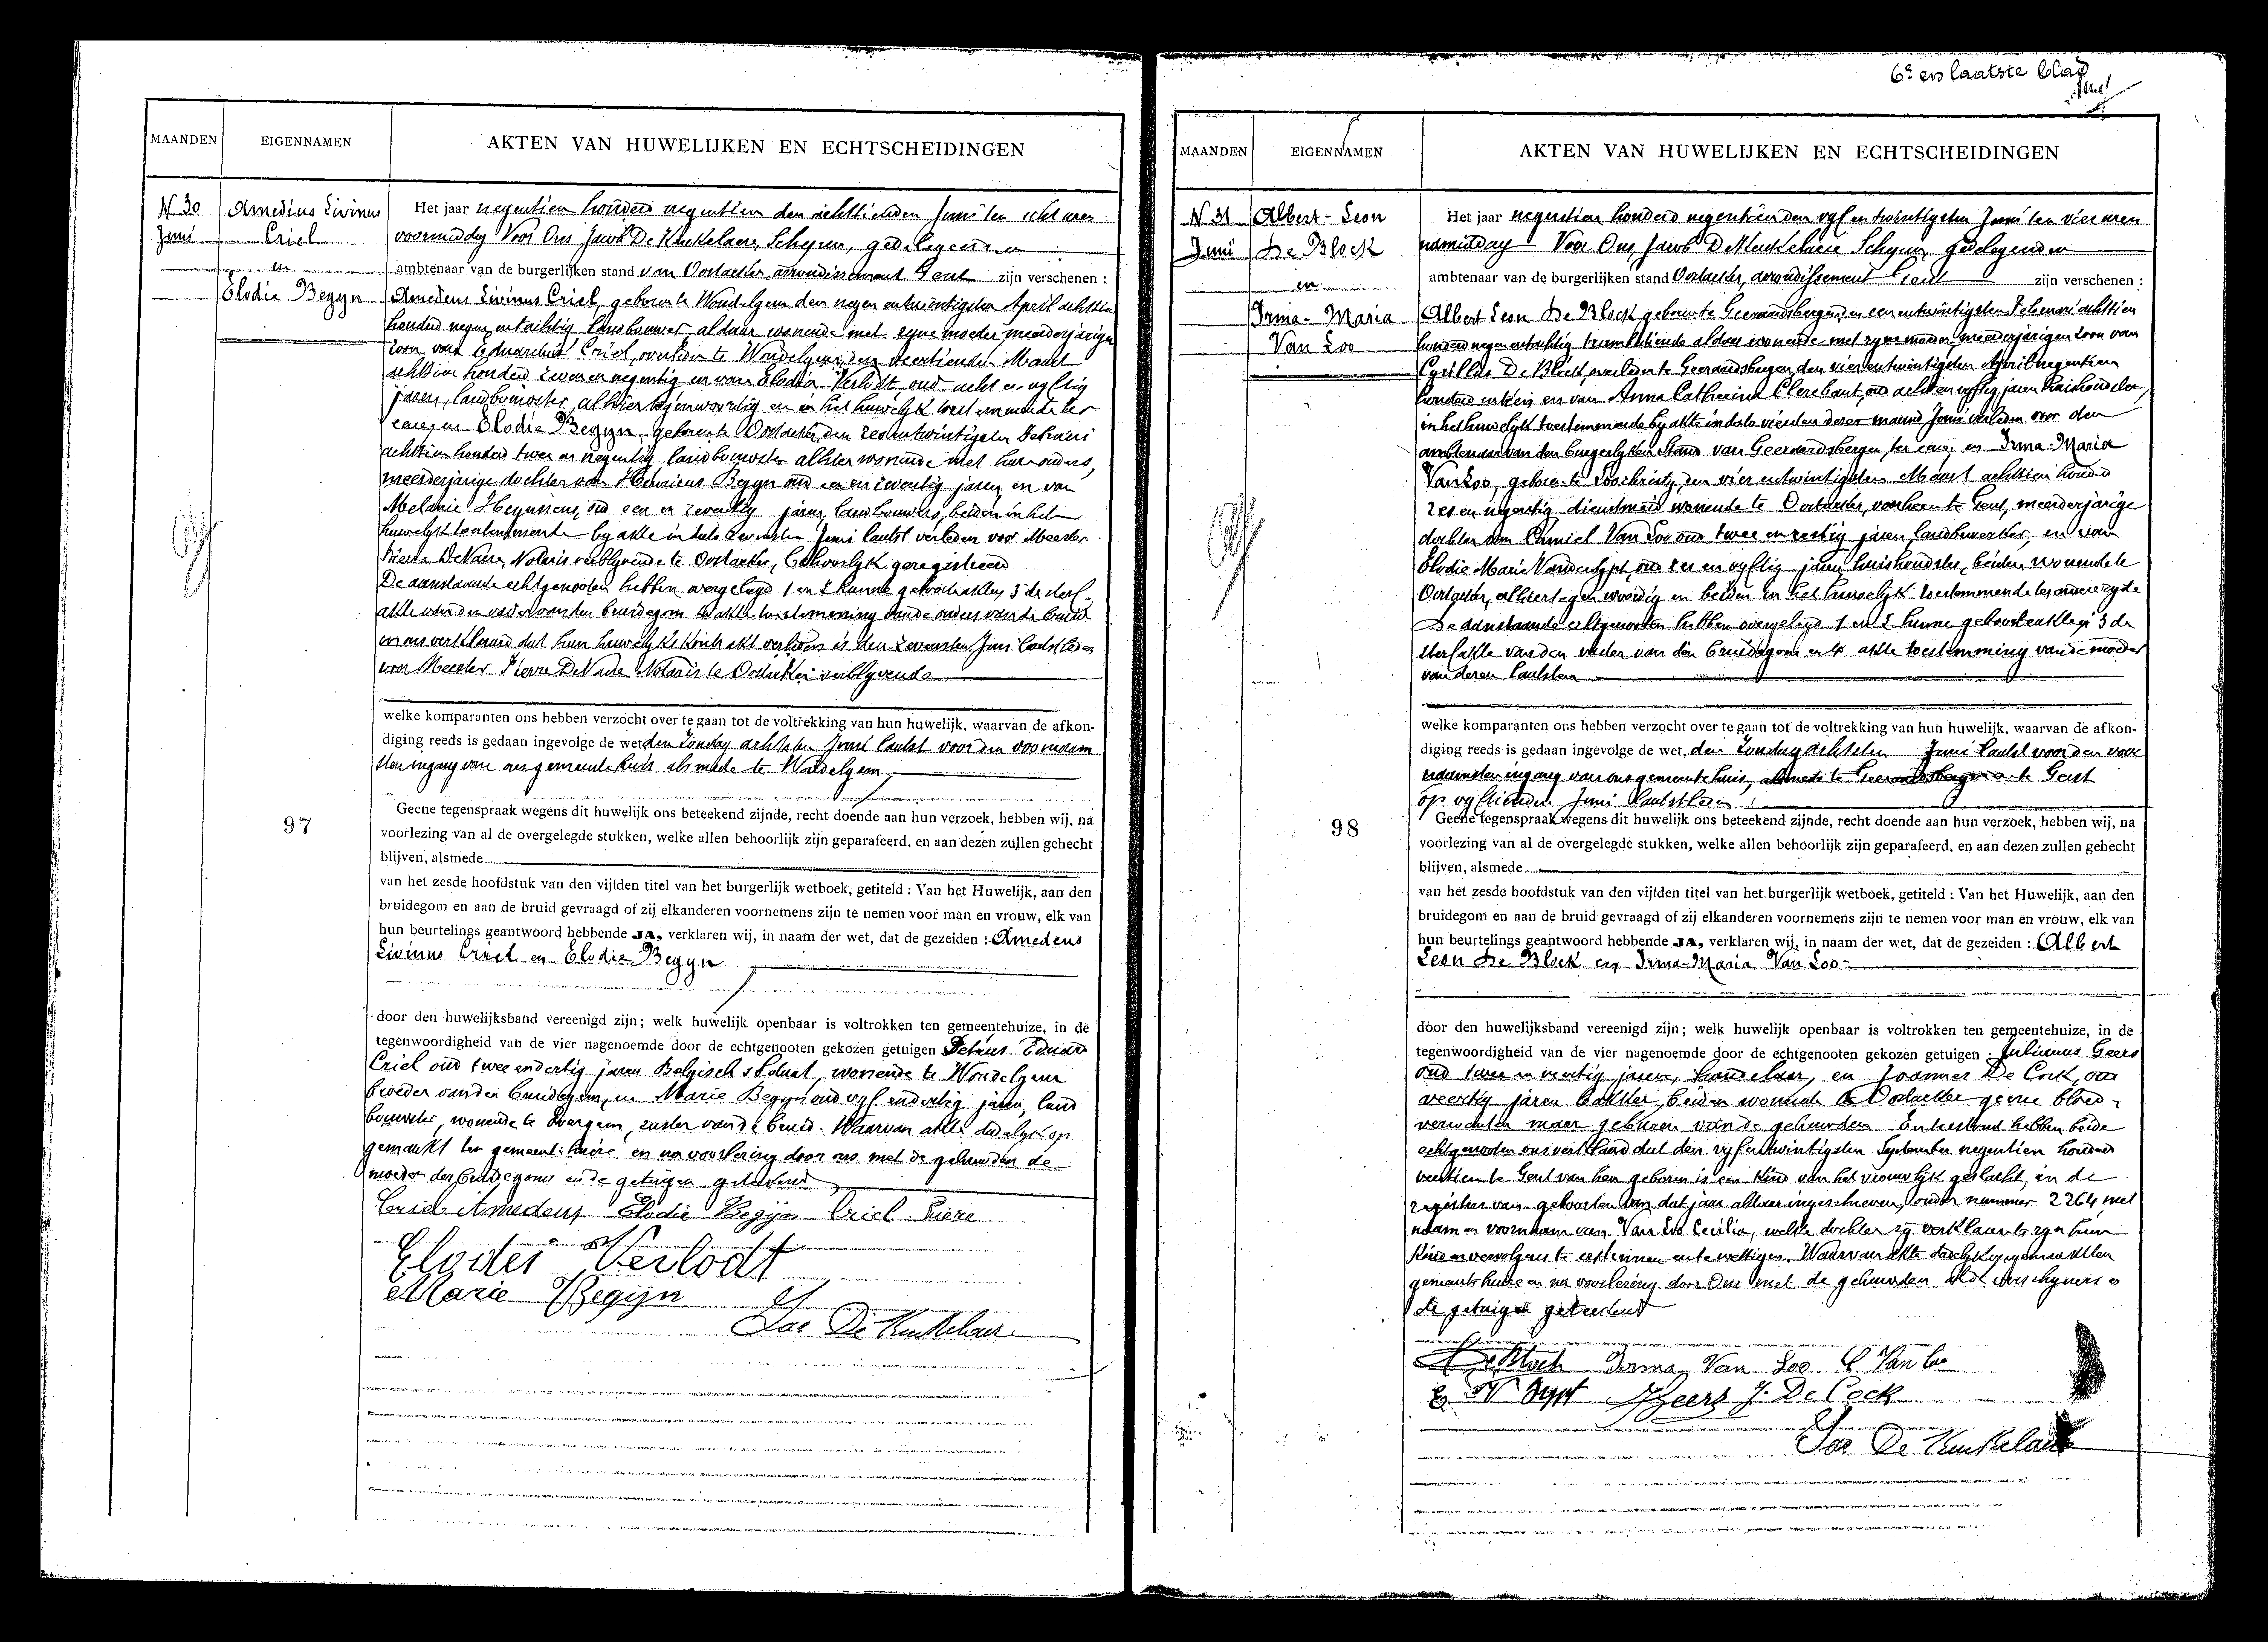 6e en laatste blad
MAANDEN EIGENNAMEN AKTEN VAN HUWELIJKEN EN ECHTSCHEIDINGEN
N 30 Amedius Livinus
Juni Criel
en
Elodie Begyn
Het jaar negentien honderd negentien den achttienden Juni ten acht uren
voormiddag Voor Ons Jacob De Keukelaere, Schepen, gedelegeerden
ambtenaar van de burgerlijken stand van Oostacker, arrondissement Gent zijn verschenen :
Amedeus Livinus Criel, geboren te Wondelgem den negen en twintigsten April achttien
honderd negen en tachtig landbouwer aldaar wonende met zyne moeder meerderjarige
zoon van Eduardus Criel, overleden te Wondelgem, den veertienden Maart
achttien honderd zeven en negentig en van Elodia Verlodt oud acht en vyftig
jaren, landbouwster, alhier tegenwoordig en in het huwelyk toestemmende ter
eene, en Elodie Begyn, geboren te Oostacker, den zes en twintigsten Februari
achttien honderd twee en negentig landbouwster alhier wonende met hare ouders,
meerderjarige dochter van Henricus Begyn oud een en zeventig jaren, en van
Melanie Heynssens, oud een en zeventig jaren, landbouwers, beiden in het
huwelyk toestemmende by akte in dato zevensten Juni laatst verleden voor Meester
Pierre De Naere, Notaris verblyvende te Oostacker, behoorlyk geregistreerd
De aanstaande echtgenooten hebben overgelegd 1 en 2 hunne geboorteakten, 3 de sterf-
akte van den vader van den bruidegom 4 akte toestemming van de ouders van de bruid
en ons verklaard dat hun huwelyks kontrakt verleden is den zevensten Juni laatstleden
voor Meester Pierre De Naere Notaris te Oostacker verblyvende
welke komparanten ons hebben verzocht over te gaan tot de voltrekking van hun huwelijk, waarvan de afkon-
diging reeds is gedaan ingevolge de wet, den Zondag achtsten Juni laatst voor den voornaam
sten ingang van ons gemeentehuis alsmede te Wondelgem
97
Geene tegenspraak wegens dit huwelijk ons beteekend zijnde, recht doende aan hun verzoek, hebben wij, na
voorlezing van al de overgelegde stukken, welke allen behoorlijk zijn geparafeerd, en aan dezen zullen gehecht
blijven, alsmede
van het zesde hoofdstuk van den vijfden titel van het burgerlijk wetboek, getiteld : Van het Huwelijk, aan den
bruidegom en aan de bruid gevraagd of zij elkanderen voornemens zijn te nemen voor man en vrouw, elk van
hun beurtelings geantwoord hebbende JA, verklaren wij, in naam der wet, dat de gezeiden : Amedeus
Livinus Criel en Elodie Begyn
door den huwelijksband vereenigd zijn; welk huwelijk openbaar is voltrokken ten gemeentehuize, in de
tegenwoordigheid van de vier nagenoemde door de echtgenooten gekozen getuigen Petrus Eduard
Criel oud twee en dertig jaren Belgisch soldaat, wonende te Wondelgem
broeder van den bruidegom, en Marie Begyn oud vyf en dertig jaren, land
bouwster, wonende te Evergem, zuster van de bruid. Waarvan akte dadelyk op
gemaakt ten gemeentehuize en na voorlezing door ons met de gehuwden de
moeder des bruidegoms en de getuigen geteekend
Criel Amedeus Elodie Begijn Criel Piere
Elodie Verlodt
Marie Begijn
Jac De Keukelaere
MAANDEN EIGENNAMEN AKTEN VAN HUWELIJKEN EN ECHTSCHEIDINGEN
N 31 Albert-Leon
Juni De Block
en
Irma-Maria
Van Loo
Het jaar negentien honderd negentien den vyf en twintigsten Juni ten vier uren
namiddag Voor Ons, Jacob De Keukelaere Schepen, gedelegeerden
ambtenaar van de burgerlijken stand Oostacker, arrondissement Gent zijn verschenen :
Albert Leon De Block geboren te Geeraardsbergen, den een en twintigsten Februari achttien
honderd negen en tachtig trambediende aldaar wonende met zyne moeder, meerderjarigen zoon van
Cyrillus De Block, overleden te Geeraardsbergen, den vier en twintigsten April negentien
honderd en een en van Anna Catharina Clerebaut, oud acht en vyftig jaren huishoudster,
in het huwelyk toestemmende by akte in dato vierden dezer maand Juni verleden voor den
ambtenaar van den burgerlyken Stand van Geeraardsbergen, ter eene, en Irma-Maria
Van Loo, geboren te Loochristy, den vier en twintigsten Maart achttien honderd
zes en negentig dienstmeid wonende te Oostacker, voorheen te Gent, meerderjarige
dochter van Camiel Van Loo oud twee en zestig jaren, landbewerker, en van
Elodie Marie Vanderlypt, oud zes en vyftig jaren, huishoudster, beiden wonende te
Oostacker, alhier tegenwoordig en beiden in het huwelyk toestemmende ter andere zyde
De aanstaande echtgenooten hebben overgelegd 1 en 2 hunne geboorteakten 3 de
sterfakte van den vader van den bruidegom en 4 akte toestemming van de moeder
van dezen laatsten
welke komparanten ons hebben verzocht over te gaan tot de voltrekking van hun huwelijk, waarvan de afkon-
diging reeds is gedaan ingevolge de wet, den Zondag achtsten Juni laatst voor den voor
naamsten ingang van ons gemeentehuis, alsmede te Geeraardsbergen en te Gent
op vyftienden Juni laatstleden
98
Geene tegenspraak wegens dit huwelijk ons beteekend zijnde, recht doende aan hun verzoek, hebben wij, na
voorlezing van al de overgelegde stukken, welke allen behoorlijk zijn geparafeerd, en aan dezen zullen gehecht
blijven, alsmede
van het zesde hoofdstuk van den vijfden titel van het burgerlijk wetboek, getiteld : Van het Huwelijk, aan den
bruidegom en aan de bruid gevraagd of zij elkanderen voornemens zijn te nemen voor man en vrouw, elk van
hun beurtelings geantwoord hebbende JA, verklaren wij, in naam der wet, dat de gezeiden : Albert
Leon De Block en Irma-Maria Van Loo
door den huwelijksband vereenigd zijn; welk huwelijk openbaar is voltrokken ten gemeentehuize, in de
tegenwoordigheid van de vier nagenoemde door de echtgenooten gekozen getuigen : Julianus Geers
oud twee en veertig jaren, handelaar, en Joannes De Cock, oud
veertig jaren bakker, beiden wonende te Oostacker geene bloed-
verwanten maar geburen van de gehuwden En terstond hebben beide
echtgenooten ons verklaard dat den vyf en twintigsten September negentien honderd
veertien te Gent van hen geboren is een kind van het vrouwlyk geslacht, in de
registers van geboorten van dat jaar aldaar ingeschreven, onder nummer 2264 met
naam en voornaam van Van Loo Cecilia, welke dochter zy verklaarden zyn hun
kind en vervolgens te erkennen en te wettigen. Waarvan akte dadelyk opgemaakt ten
gemeentehuize en na voorlezing door Ons met de gehuwden al de verschyners en
de getuigen geteekend
De Block Irma Van Loo C. Van Loo
E. V Lypt J Geers J. De Cock
Jac De Keukelaere